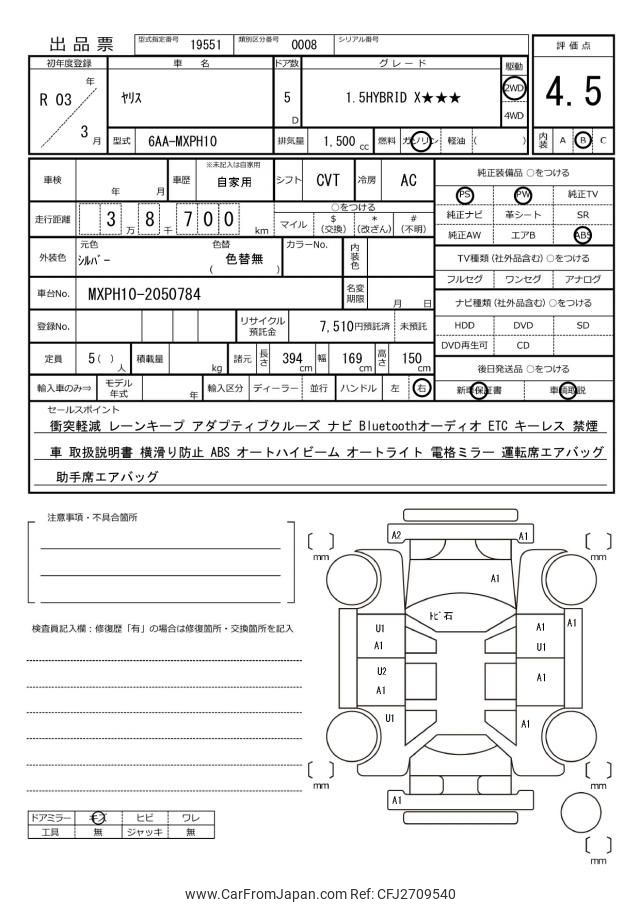 出品票 型式指定番号 19551 類別区分番号 0008 シリアル番号
評価点
初年度登録 車名 ドア数 グレード 駆動
R 03 年 3 月 ヤリス 5 D 1.5HYBRID X★★★ 2WD 4WD
4.5
型式 6AA-MXPH10 排気量 1,500 cc 燃料 ガソリン 軽油 ( )
内装 A B C
車検 年 月 車歴 ※未記入は自家用 自家用 シフト CVT 冷房 AC
走行距離 3 万 8 千 7 0 0 km
○をつける
マイル $ (交換) * (改ざん) # (不明)
外装色 元色 シルバー 色替 ( 色替無 ) カラーNo. 内装色
車台No. MXPH10-2050784 名変期限 月 日
登録No. リサイクル預託金 7,510円預託済 未預託
定員 5( ) 人 積載量 kg 諸元 長さ 394 cm 幅 169 cm 高さ 150 cm
輸入車のみ⇒ モデル年式 年 輸入区分 ディーラー 並行 ハンドル 左 右
純正装備品 ○をつける
PS PW 純正TV
純正ナビ 革シート SR
純正AW エアB ABS
TV種類 (社外品含む) ○をつける
フルセグ ワンセグ アナログ
ナビ種類 (社外品含む) ○をつける
HDD DVD SD
DVD再生可 CD
後日発送品 ○をつける
新車保証書 車輌取説
セールスポイント
衝突軽減 レーンキープ アダプティブクルーズ ナビ Bluetoothオーディオ ETC キーレス 禁煙
車 取扱説明書 横滑り防止 ABS オートハイビーム オートライト 電格ミラー 運転席エアバッグ
助手席エアバッグ
注意事項・不具合箇所
検査員記入欄:修復歴「有」の場合は修復箇所・交換箇所を記入
ドアミラー キズ ヒビ ワレ
工具 無 ジャッキ 無
A2 A1
[ ] mm [ ] mm
A1
トビ石
U1 A1 A1
A1 U1
U2 A1
A1
U1 A1
[ ] mm [ ] mm
A1
[ ] mm
www.CarFromJapan.com Ref: CFJ2709540